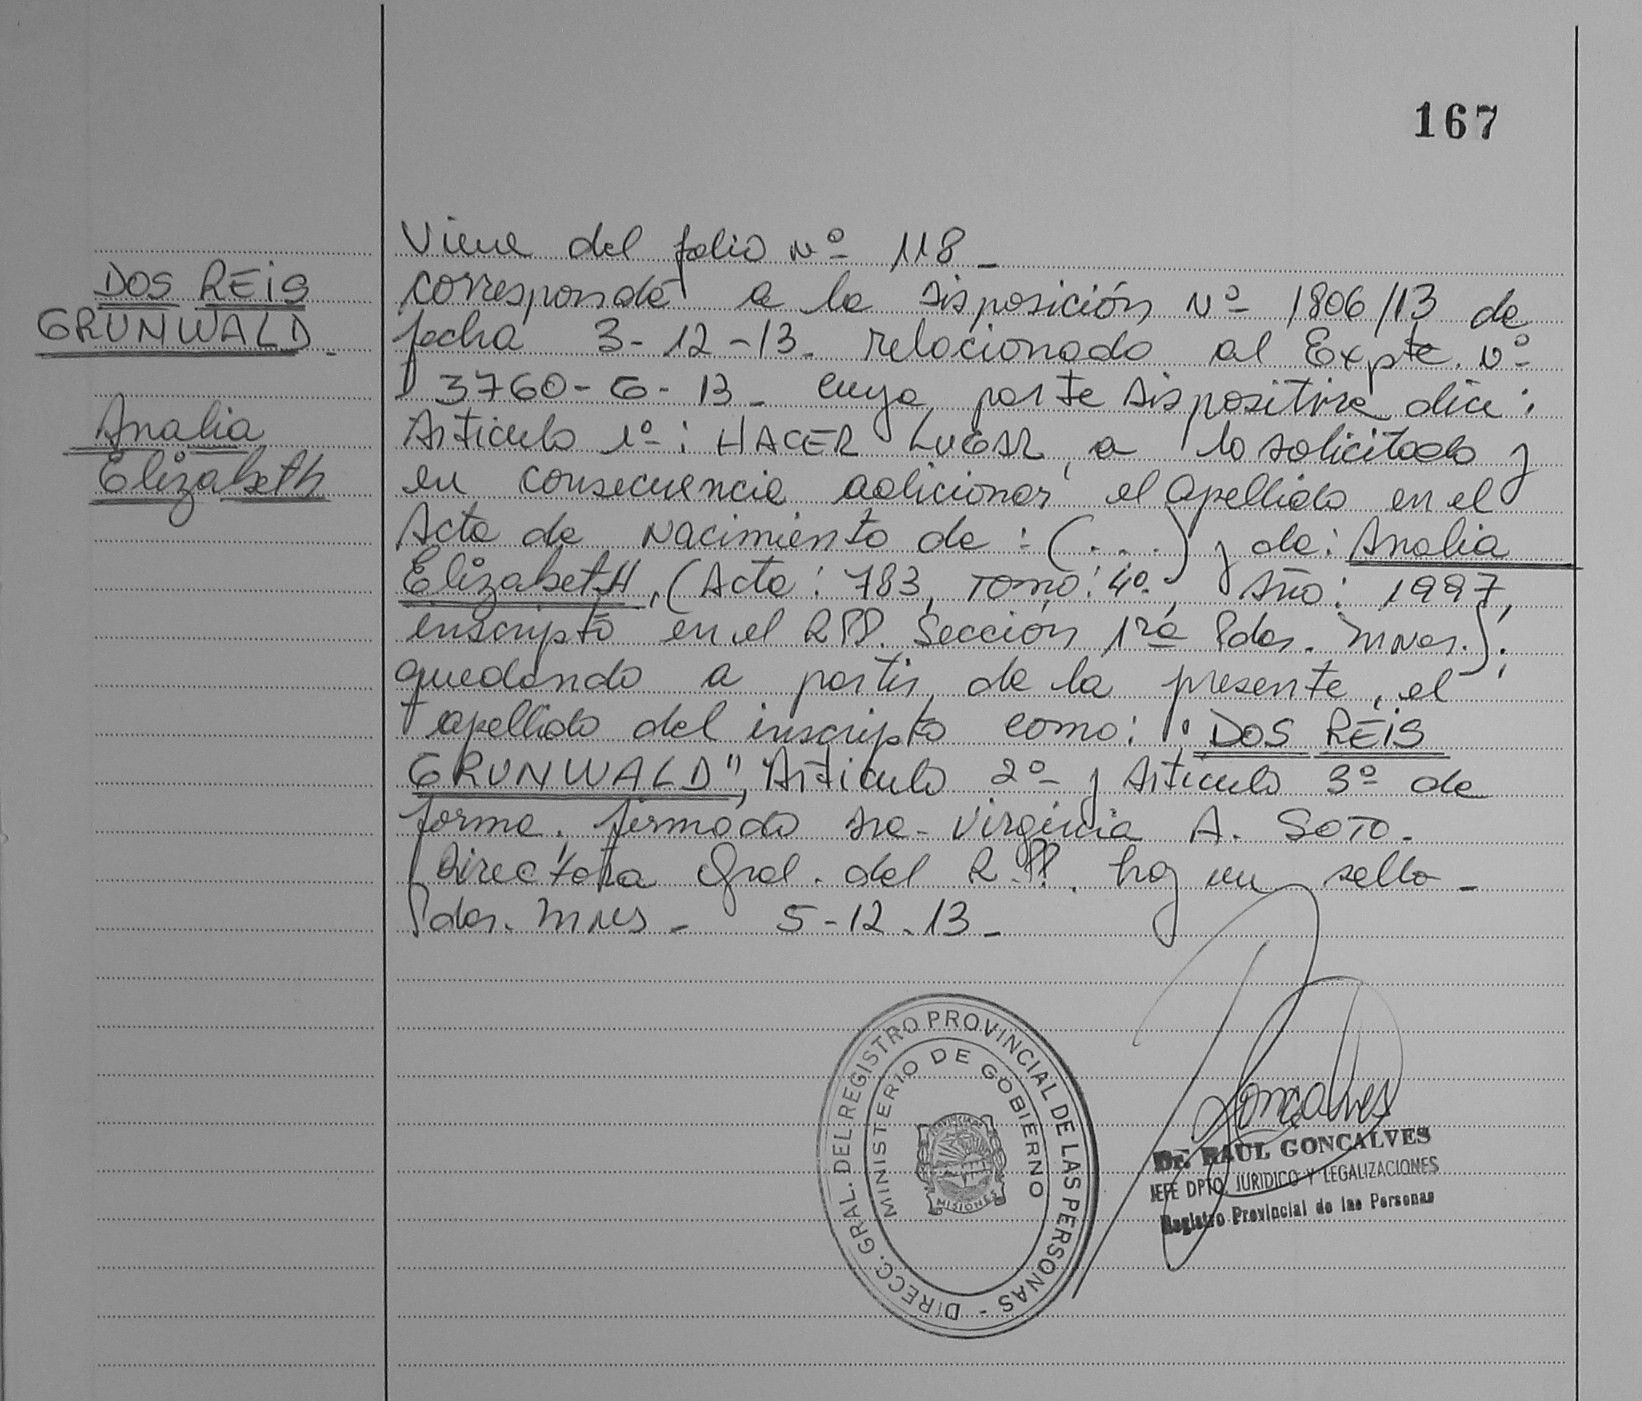 167
DOS REIS
GRUNWALD.
Analia
Elizabeth
Viene del folio Nº 118 -
corresponde a la disposición Nº 1806/13 de
fecha 3-12-13. relacionado al Expte. Nº
3760-G-13 - cuya parte dispositiva dice:
Articulo 1º: HACER LUGAR, a lo solicitado y
en consecuencia adicionar el apellido en el
Acta de Nacimiento de: (...) y de: Analia
ElizabetH, (Acta: 783, Tomo: 4º, Año: 1997,
inscripto en el RPP. Sección 1ra Pdas. Mnes.);
quedando a partir de la presente, el
apellido del inscripto como: "DOS REIS
GRUNWALD", Articulo 2º y Articulo 3º de
forma. firmado Sra. Virginia A. SOTO -
Directora Gral. del R.PP. hay un sello -
Pdas. Mnes - 5-12.13 -
DIRECC. GRAL. DEL REGISTRO PROVINCIAL DE LAS PERSONAS -
MINISTERIO DE GOBIERNO
PROVINCIA
MISIONES
Goncalves
Dr. RAUL GONCALVES
JEFE DPTO. JURIDICO Y LEGALIZACIONES
Registro Provincial de las Personas